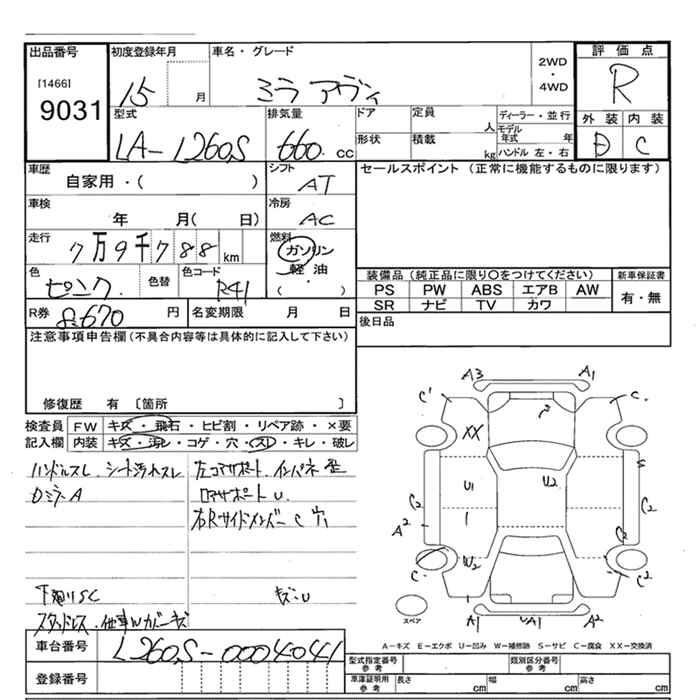 出品番号 初度登録年月 車名・グレード 2WD・4WD 評価点
[1466]
9031 15 月 ミラ アヴィ R
型式 排気量 ドア 定員 人 ディーラー・並行 外装 内装
LA-L260S 660 cc 形状 積載 kg モデル年式 年 ハンドル 左・右 D C
車歴 自家用・( ) シフト AT セールスポイント (正常に機能するものに限ります)
車検 年 月( 日) 冷房 AC
走行 7万9千788km 燃料 ガソリン 軽油・( )
色 ピンク 色替 色コード R41 装備品(純正品に限り○をつけてください) 新車保証書
PS PW ABS エアB AW 有・無
SR ナビ TV カワ
R券 8670 円 名変期限 月 日 後日品
注意事項申告欄(不具合内容等は具体的に記入して下さい)
修復歴 有 〔箇所 〕
検査員 FW キズ・飛石・ヒビ割・リペア跡・×要
記入欄 内装 キズ・汚レ・コゲ・穴・スレ・キレ・破レ
ハンドルスレ シート汚れスレ 左コアサポート、インパネ 歪
ロアサポート U
右Rサイドメンバー C 穴
下廻りSC キズ・U
スタッドレス
車台番号 L260S-0004041
登録番号
A3 A1
C' C
XX
U1 U2 S
C2 C2
A2 1
C2
C W2 C2
スペア A1 UA1 A2
A-キズ E-エクボ U-凹み W-補修跡 S-サビ C-腐食 XX-交換済
型式指定番号 参考 類別区分番号 参考
車庫証明用 参考 長さ cm 幅 cm 高さ cm